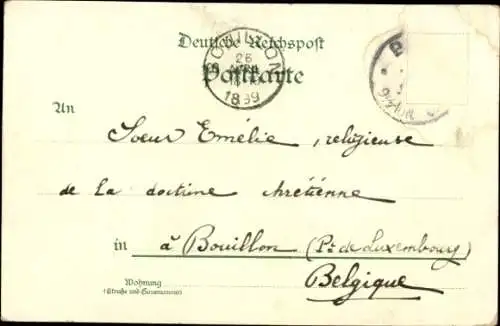 Deutsche Reichspost
Postkarte
BOUILLON
26
AVRIL
1899
An
Sœur Emélie, religieuse
de la doctrine chrétienne
in à Bouillon (Pce de Luxembourg)
Belgique
Wohnung
(Straße und Hausnummer)